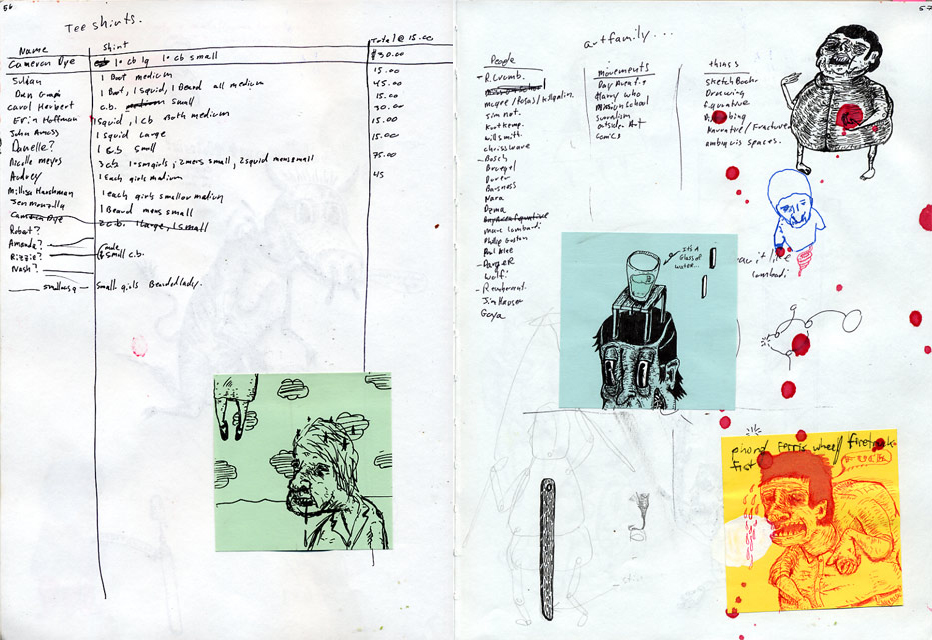 56
Tee shirts.
Name
shirt
Total @ 15.00
Cameron Dye
1 cb lg 1 cb small
$30.00
Sultan
1 Boot medium
15.00
1 Boot, 1 squid, 1 Beard all medium
45.00
Carol Heribert
c.b. small
15.00
Erin Hoffman
1 squid, 1 cb Both medium
30.00
John Amoss
1 squid Large
15.00
Danelle?
1 c.b. small
15.00
Nicolle Meyrs
75.00
Audrey
1 Each girls medium
45
Millisa Harshman
1 each girls small or medium
Jen
1 Beard mens small
Cameron Dye
2 c.b. 1 Large, 1 small
Robert?
Amanda?
Rizzie?
small c.b.
Nash?
small girls Bearded lady.
57
artfamily...
People
R. Crumb.
mcgee / Rosas / killgallen.
Jim not.
Kent kemp.
will smitt.
chris ware
Bosch
Bruegel
Durer
Nara
Dzma
marc lombardi
Philip Guston
Paul Klee
Darger
Wolfi.
Rembrandt.
Goya
movements
Day Avent.e
Hairy who
Mission School
surealism
outsider Art
Comics
things
Sketch Books
Drawing
figurative
Narrative / Fractured
ambiguis spaces.
It's a
Glass of
water...
lombardi
ferris wheel / firetruck
fist